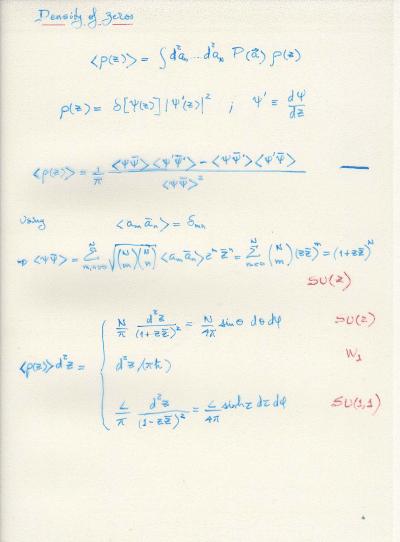 Density of zeros
<ρ(z)> = ∫ d²a₁ ... d²a_N P(a⃗) ρ(z)
ρ(z) = δ[Ψ(z)] |Ψ'(z)|² ; Ψ' ≡ dΨ/dz
<ρ(z)> = 1/π (<ΨΨ̄><Ψ'Ψ̄'> − <ΨΨ̄'><Ψ'Ψ̄>) / <ΨΨ̄>²
Using <a_m ā_n> = δ_mn
⇒ <ΨΨ̄> = Σ_{m,n=0}^N √((N m)(N n)) <a_m ā_n> z^m z̄^n = Σ_{m=0}^N (N m) (zz̄)^m = (1+zz̄)^N
SU(2)
N/π d²z/(1+zz̄)² = N/4π sinθ dθ dφ SU(2)
<ρ(z)> d²z = { d²z/(πħ) W₁
L/π d²z/(1−zz̄)² = L/4π sinh τ dτ dφ SU(1,1)